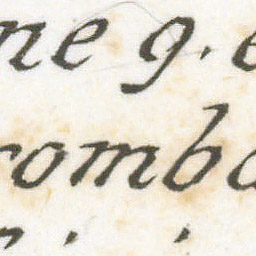 ne 9. e
romba